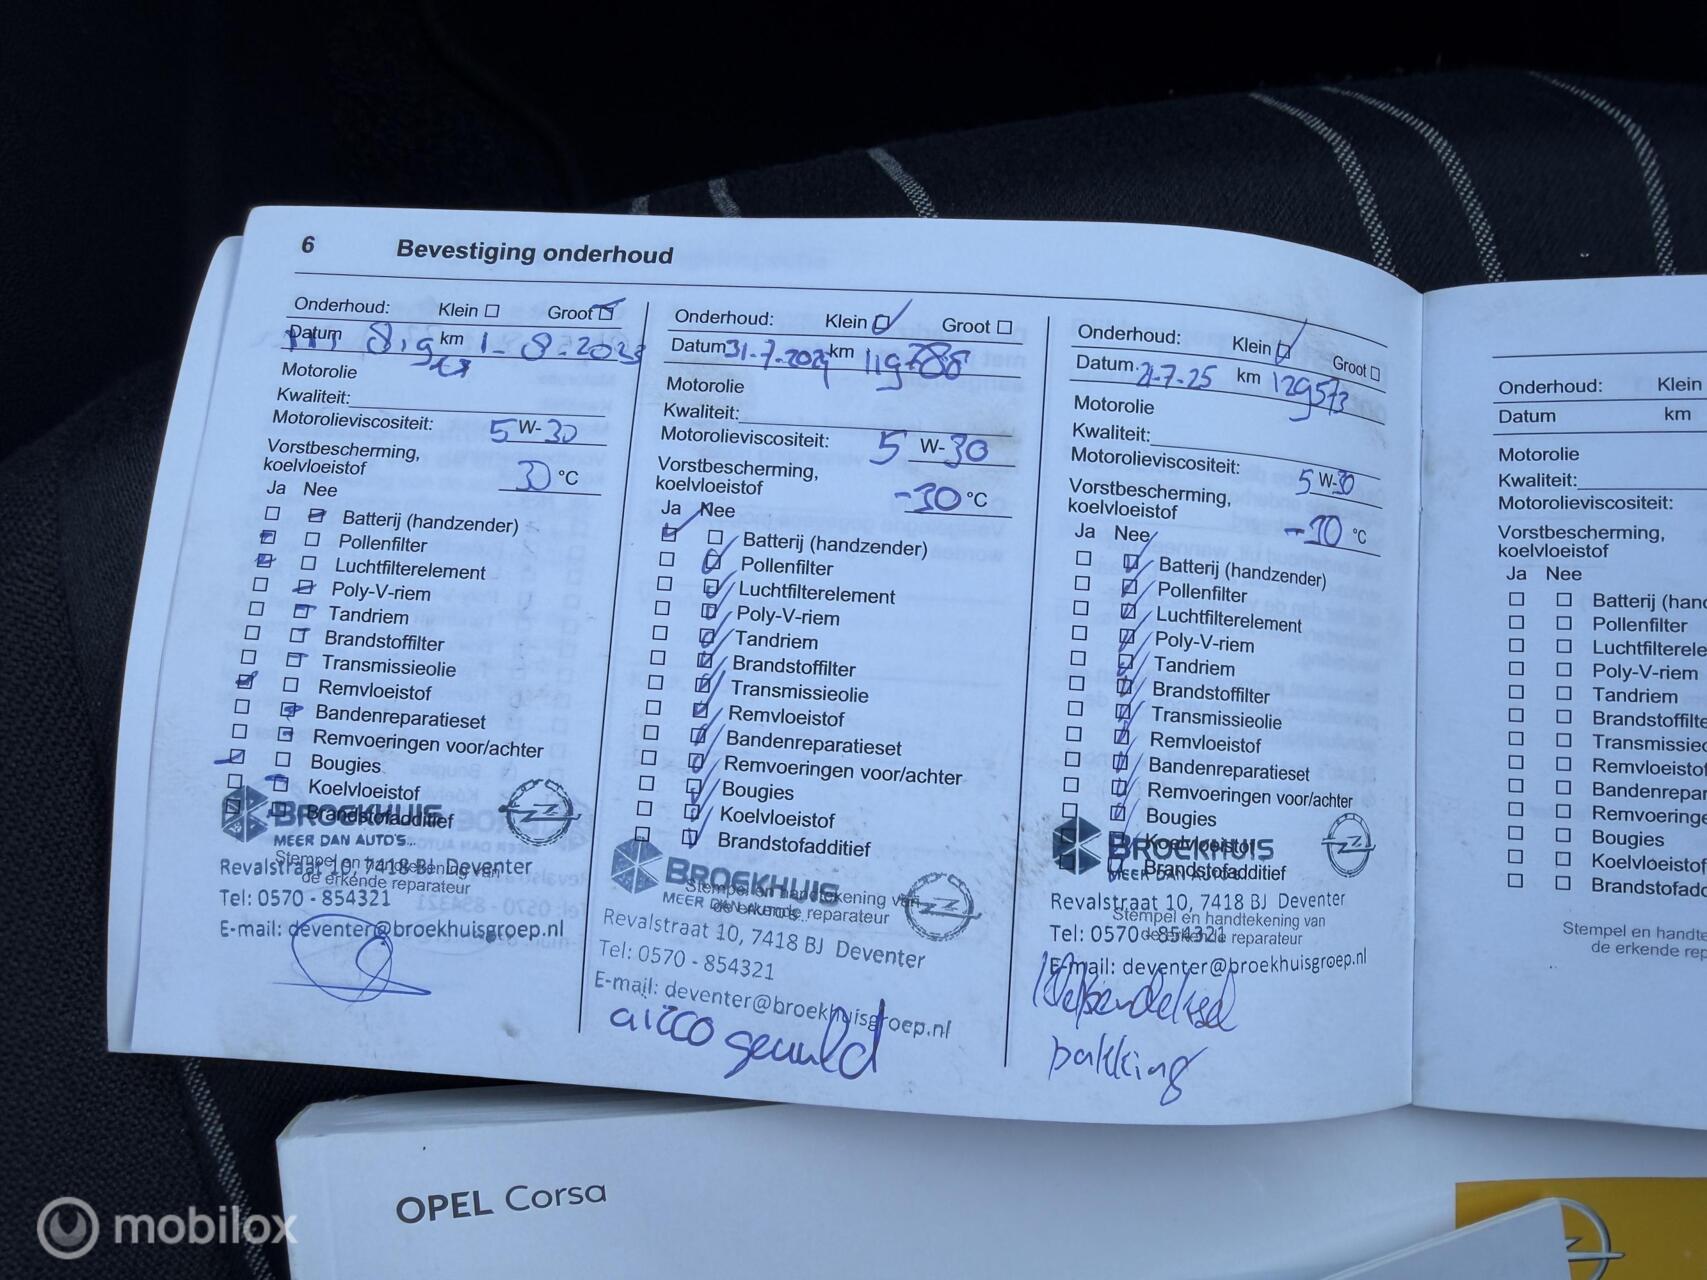 6 Bevestiging onderhoud
Onderhoud: Klein Groot
Datum km 1-8-2023
Motorolie
Kwaliteit:
Motorolieviscositeit: 5 W-30
Vorstbescherming,
koelvloeistof 30 °C
Ja Nee
Batterij (handzender)
Pollenfilter
Luchtfilterelement
Poly-V-riem
Tandriem
Brandstoffilter
Transmissieolie
Remvloeistof
Bandenreparatieset
Remvoeringen voor/achter
Bougies
Koelvloeistof
Brandstofadditief
BROEKHUIS
MEER DAN AUTO'S...
Stempel en handtekening van
de erkende reparateur
Revalstraat 10, 7418 BJ Deventer
Tel: 0570 - 854321
E-mail: deventer@broekhuisgroep.nl
Onderhoud: Klein Groot
Datum 31-7-2024 km 119788
Motorolie
Kwaliteit:
Motorolieviscositeit: 5 W-30
Vorstbescherming,
koelvloeistof -30 °C
Ja Nee
Batterij (handzender)
Pollenfilter
Luchtfilterelement
Poly-V-riem
Tandriem
Brandstoffilter
Transmissieolie
Remvloeistof
Bandenreparatieset
Remvoeringen voor/achter
Bougies
Koelvloeistof
Brandstofadditief
BROEKHUIS
MEER DAN AUTO'S...
Stempel en handtekening van
de erkende reparateur
Revalstraat 10, 7418 BJ Deventer
Tel: 0570 - 854321
E-mail: deventer@broekhuisgroep.nl
airco gevuld
Onderhoud: Klein Groot
Datum 21-7-25 km 129573
Motorolie
Kwaliteit:
Motorolieviscositeit: 5 W-30
Vorstbescherming,
koelvloeistof °C
Ja Nee
Batterij (handzender)
Pollenfilter
Luchtfilterelement
Poly-V-riem
Tandriem
Brandstoffilter
Transmissieolie
Remvloeistof
Bandenreparatieset
Remvoeringen voor/achter
Bougies
Koelvloeistof
Brandstofadditief
BROEKHUIS
MEER DAN AUTO'S
Revalstraat 10, 7418 BJ Deventer
Stempel en handtekening van
de erkende reparateur
Tel: 0570 - 854321
E-mail: deventer@broekhuisgroep.nl
Klependeksel
pakking
Onderhoud: Klein
Datum km
Motorolie
Kwaliteit:
Motorolieviscositeit:
Vorstbescherming,
koelvloeistof
Ja Nee
Batterij (hand
Pollenfilter
Luchtfilterele
Poly-V-riem
Tandriem
Brandstoffilte
Transmissieo
Remvloeistof
Bandenrepar
Remvoeringe
Bougies
Koelvloeistof
Brandstofadd
Stempel en handte
de erkende rep
OPEL Corsa
mobilox